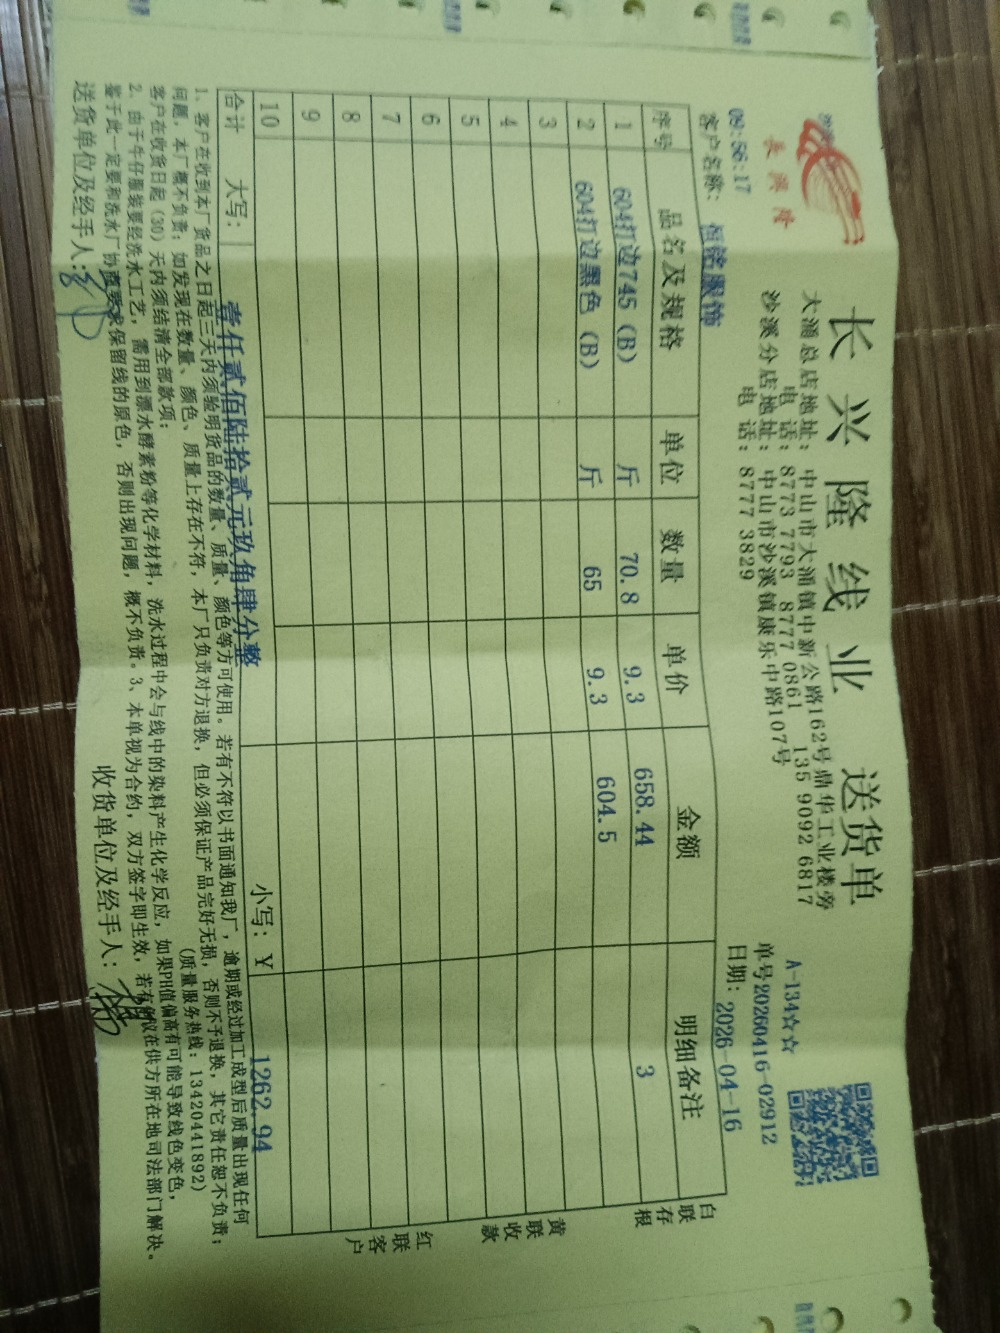 長興隆
长兴隆线业 送货单
大涌总店地址：中山市大涌镇中新公路162号鼎华工业楼旁
电 话：8773 7793 8777 0861 135 9092 6817
沙溪分店地址：中山市沙溪镇康乐中路107号
电 话：8777 3829
A-134☆☆
单号20260416-02912
09:56:17
日期：2026-04-16
客户名称：恒铭服饰
序号 品名及规格 单位 数量 单价 金额 明细备注
1 604打边745（B） 斤 70.8 9.3 658.44 3
2 604打边黑色（B） 斤 65 9.3 604.5
3
4
5
6
7
8
9
10
合计 大写：壹仟贰佰陆拾贰元玖角肆分整 小写：¥ 1262.94
白联存根
黄联收款
红联客户
1、客户在收到本厂货品之日起三天内须验明货品的数量、质量、颜色等方可使用。若有不符以书面通知我厂，逾期或经过加工成型后质量出现任何
问题，本厂概不负责；如发现在数量、颜色、质量上存在不符，本厂只负责对方退换，但必须保证产品完好无损，否则不予退换，其它责任恕不负责；
客户在收货日起（30）天内须结清全部款项； （质量服务热线：13420441892）
2、由于牛仔服装要经洗水工艺，需用到漂水酵素粉等化学材料，洗水过程中会与线中的染料产生化学反应，如果PH值偏高有可能导致线色变色，
鉴于此一定要和洗水厂协商要求保留线的原色，否则出现问题，概不负责。3、本单视为合约，双方签字即生效，若有争议在供方所在地司法部门解决。
送货单位及经手人： 收货单位及经手人：